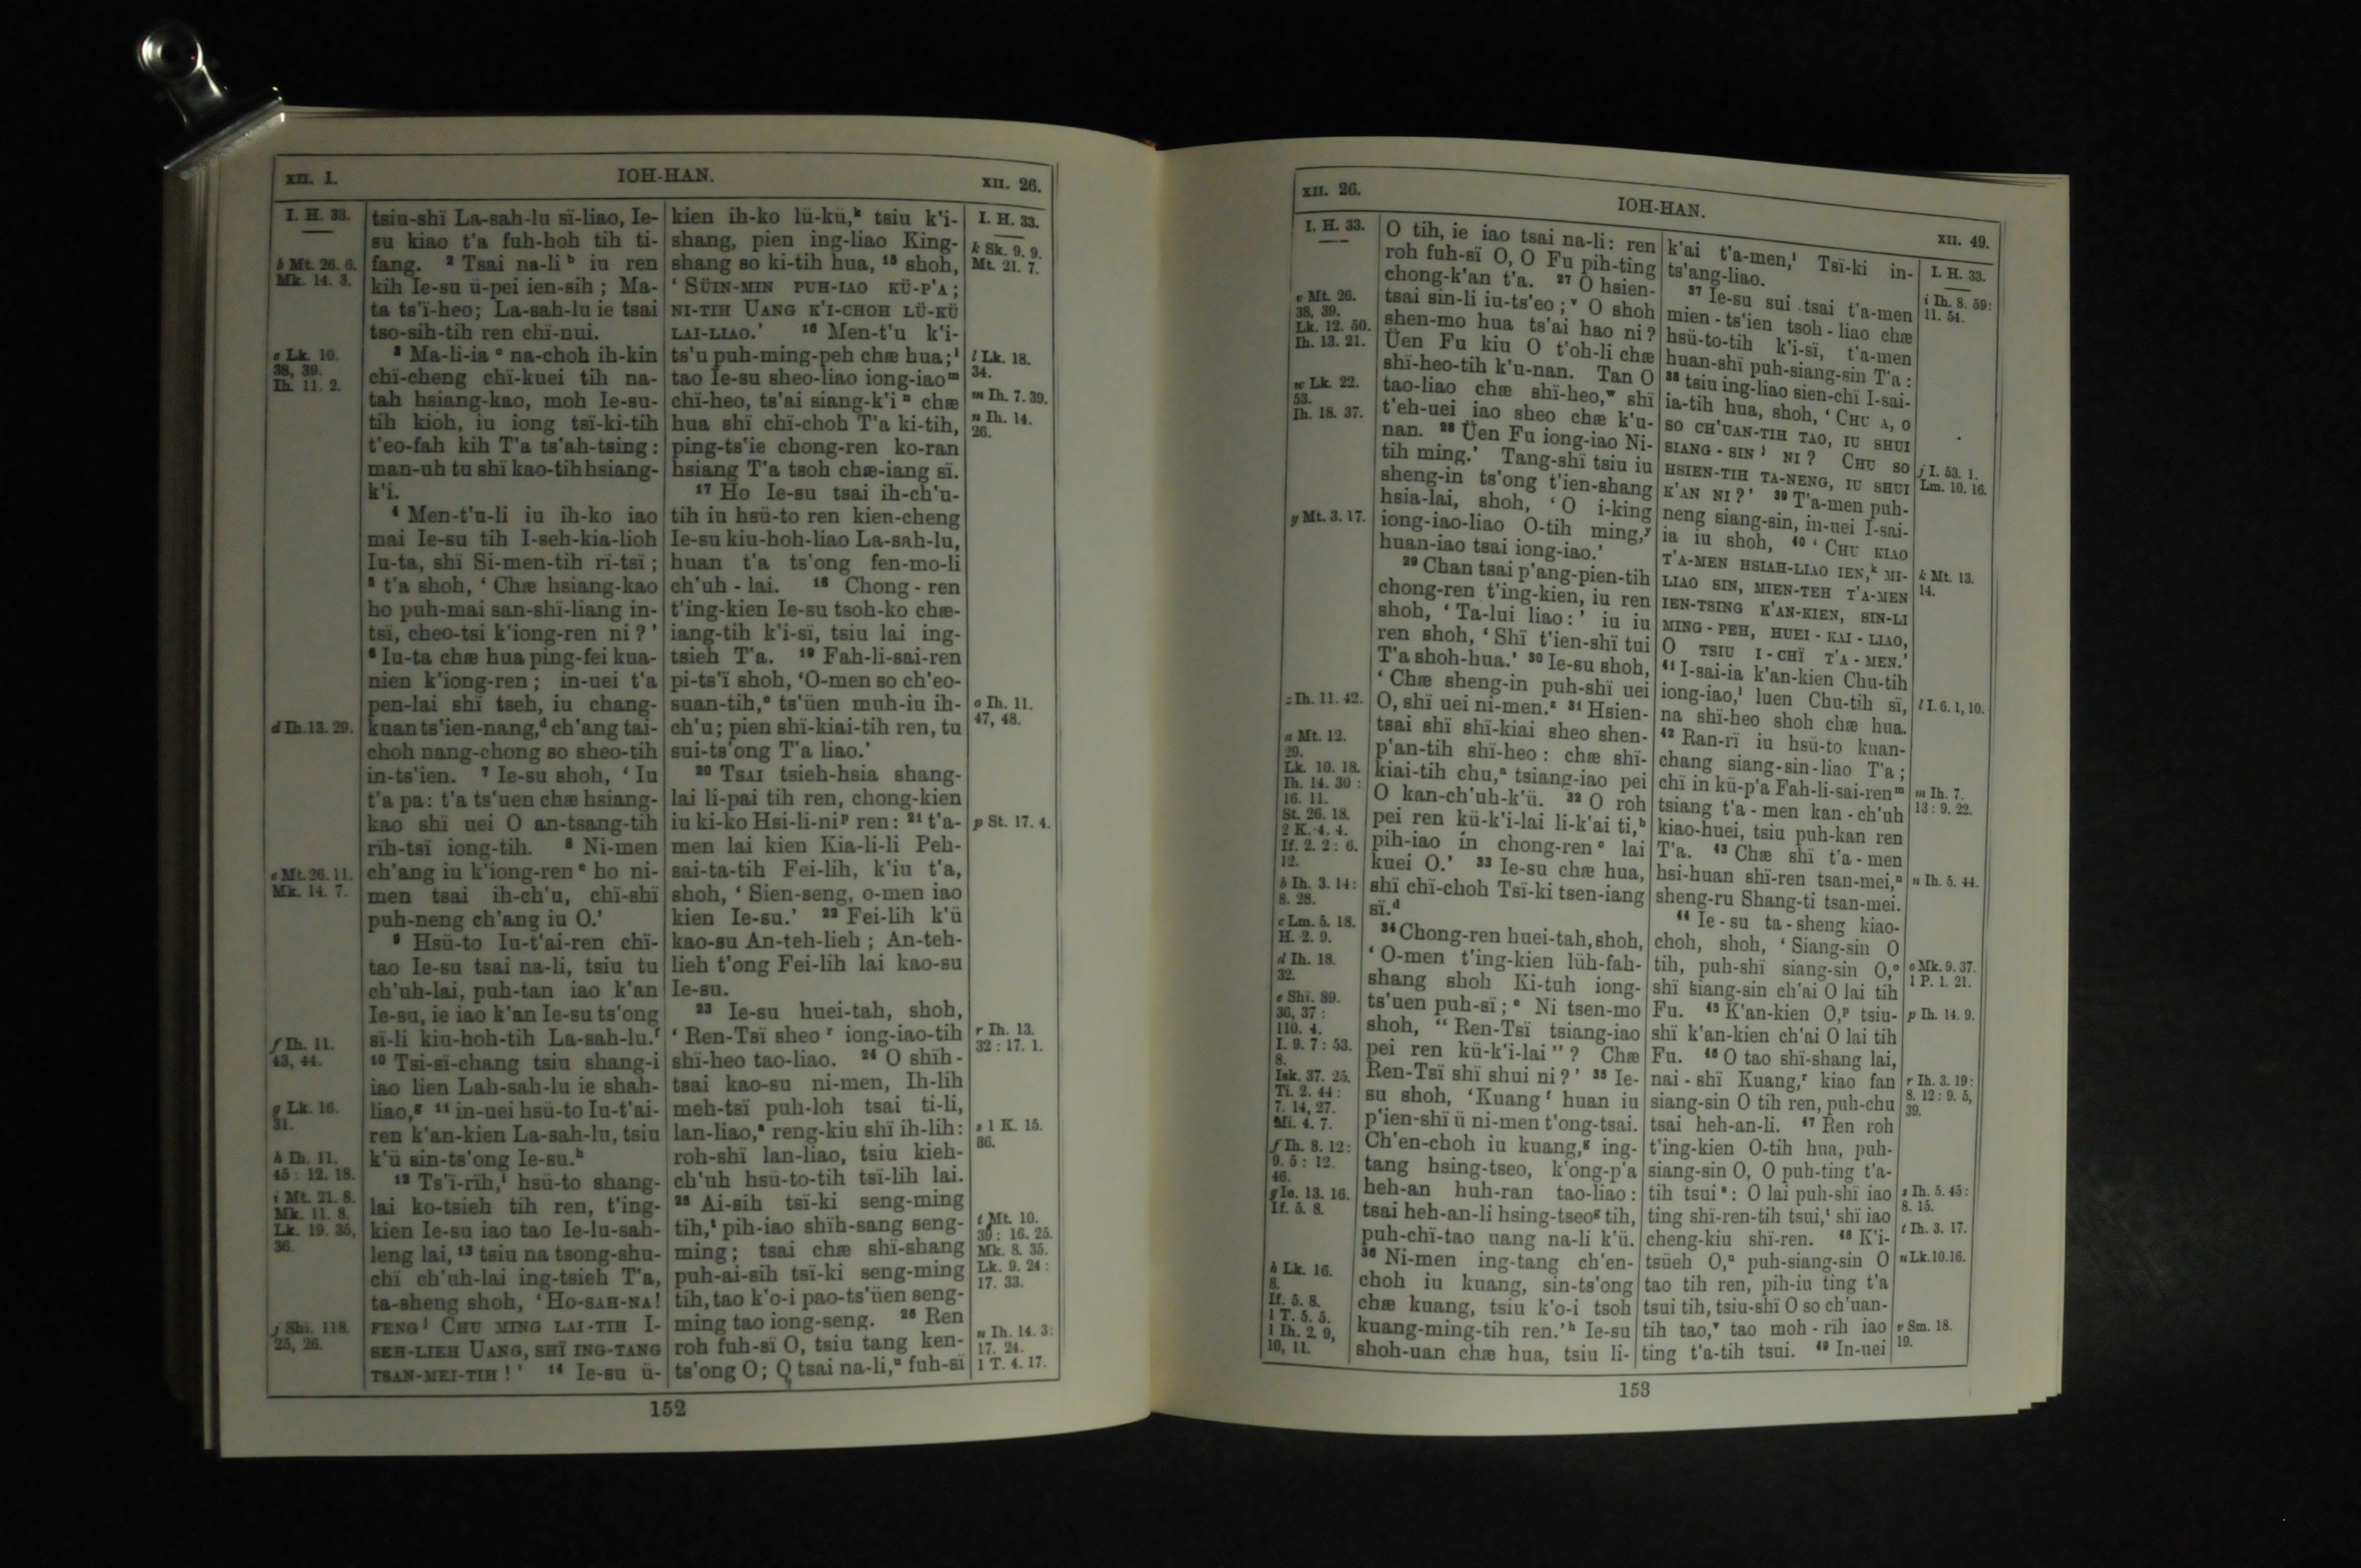 XII. 1.
IOH-HAN.
XII. 26.
I. H. 33.
b Mt. 26. 6.
Mk. 14. 3.
c Lk. 10.
38, 39.
Ih. 11. 2.
d Ih. 13. 29.
e Mt. 26. 11.
Mk. 14. 7.
f Ih. 11.
43, 44.
g Lk. 16.
31.
h Ih. 11.
45 : 12. 18.
i Mt. 21. 8.
Mk. 11. 8.
Lk. 19. 35,
36.
j Shï. 118.
25, 26.
tsiu-shï La-sah-lu sï-liao, Ie-
su kiao t'a fuh-hoh tih ti-
fang. ² Tsai na-li ᵇ iu ren
kih Ie-su ü-pei ien-sih ; Ma-
ta ts'ï-heo; La-sah-lu ie tsai
tso-sih-tih ren chï-nui.
³ Ma-li-ia ᶜ na-choh ih-kin
chï-cheng chï-kuei tih na-
tah hsiang-kao, moh Ie-su-
tih kioh, iu iong tsï-ki-tih
t'eo-fah kih T'a ts'ah-tsing :
man-uh tu shï kao-tih hsiang-
k'i.
⁴ Men-t'u-li iu ih-ko iao
mai Ie-su tih I-seh-kia-lioh
Iu-ta, shï Si-men-tih rï-tsï ;
⁵ t'a shoh, ‘ Chæ hsiang-kao
ho puh-mai san-shï-liang in-
tsï, cheo-tsi k'iong-ren ni ?’
⁶ Iu-ta chæ hua ping-fei kua-
nien k'iong-ren ; in-uei t'a
pen-lai shï tseh, iu chang-
kuan ts'ien-nang,ᵈ ch'ang tai-
choh nang-chong so sheo-tih
in-ts'ien. ⁷ Ie-su shoh, ‘ Iu
t'a pa : t'a ts'uen chæ hsiang-
kao shï uei O an-tsang-tih
rïh-tsï iong-tih. ⁸ Ni-men
ch'ang iu k'iong-ren ᵉ ho ni-
men tsai ih-ch'u, chï-shï
puh-neng ch'ang iu O.’
⁹ Hsü-to Iu-t'ai-ren chï-
tao Ie-su tsai na-li, tsiu tu
ch'uh-lai, puh-tan iao k'an
Ie-su, ie iao k'an Ie-su ts'ong
sï-li kiu-hoh-tih La-sah-lu.ᶠ
¹⁰ Tsi-sï-chang tsiu shang-i
iao lien Lah-sah-lu ie shah-
liao,ᵍ ¹¹ in-uei hsü-to Iu-t'ai-
ren k'an-kien La-sah-lu, tsiu
k'ü sin-ts'ong Ie-su.ʰ
¹² Ts'ï-rïh,ⁱ hsü-to shang-
lai ko-tsieh tih ren, t'ing-
kien Ie-su iao tao Ie-lu-sah-
leng lai, ¹³ tsiu na tsong-shu-
chï ch'uh-lai ing-tsieh T'a,
ta-sheng shoh, ‘ HO-SAH-NA!
FENG ʲ CHU MING LAI-TIH I-
SEH-LIEH UANG, SHÏ ING-TANG
TSAN-MEI-TIH ! ’ ¹⁴ Ie-su ü-
kien ih-ko lü-kü,ᵏ tsiu k'i-
shang, pien ing-liao King-
shang so ki-tih hua, ¹⁵ shoh,
‘ SÜIN-MIN PUH-IAO KÜ-P'A ;
NI-TIH UANG K'I-CHOH LÜ-KÜ
LAI-LIAO.’ ¹⁶ Men-t'u k'i-
ts'u puh-ming-peh chæ hua;ˡ
tao Ie-su sheo-liao iong-iaoᵐ
chï-heo, ts'ai siang-k'i ⁿ chæ
hua shï chï-choh T'a ki-tih,
ping-ts'ie chong-ren ko-ran
hsiang T'a tsoh chæ-iang sï.
¹⁷ Ho Ie-su tsai ih-ch'u-
tih iu hsü-to ren kien-cheng
Ie-su kiu-hoh-liao La-sah-lu,
huan t'a ts'ong fen-mo-li
ch'uh - lai. ¹⁸ Chong - ren
t'ing-kien Ie-su tsoh-ko chæ-
iang-tih k'i-sï, tsiu lai ing-
tsieh T'a. ¹⁹ Fah-li-sai-ren
pi-ts'ï shoh, ‘O-men so ch'eo-
suan-tih,ᵒ ts'üen muh-iu ih-
ch'u ; pien shï-kiai-tih ren, tu
sui-ts'ong T'a liao.’
²⁰ TSAI tsieh-hsia shang-
lai li-pai tih ren, chong-kien
iu ki-ko Hsi-li-niᵖ ren : ²¹ t'a-
men lai kien Kia-li-li Peh-
sai-ta-tih Fei-lih, k'iu t'a,
shoh, ‘ Sien-seng, o-men iao
kien Ie-su.’ ²² Fei-lih k'ü
kao-su An-teh-lieh ; An-teh-
lieh t'ong Fei-lih lai kao-su
Ie-su.
²³ Ie-su huei-tah, shoh,
‘ Ren-Tsï sheo ʳ iong-iao-tih
shï-heo tao-liao. ²⁴ O shïh-
tsai kao-su ni-men, Ih-lih
meh-tsï puh-loh tsai ti-li,
lan-liao,ˢ reng-kiu shï ih-lih :
roh-shï lan-liao, tsiu kieh-
ch'uh hsü-to-tih tsï-lih lai.
²⁵ Ai-sih tsï-ki seng-ming
tih,ᵗ pih-iao shïh-sang seng-
ming ; tsai chæ shï-shang
puh-ai-sih tsï-ki seng-ming
tih, tao k'o-i pao-ts'üen seng-
ming tao iong-seng. ²⁶ Ren
roh fuh-sï O, tsiu tang ken-
ts'ong O ; O tsai na-li,ᵘ fuh-sï
I. H. 33.
k Sk. 9. 9.
Mt. 21. 7.
l Lk. 18.
34.
m Ih. 7. 39.
n Ih. 14.
26.
o Ih. 11.
47, 48.
p St. 17. 4.
r Ih. 13.
32 : 17. 1.
s 1 K. 15.
36.
t Mt. 10.
39 : 16. 25.
Mk. 8. 35.
Lk. 9. 24 :
17. 33.
u Ih. 14. 3 :
17. 24.
1 T. 4. 17.
152
XII. 26.
IOH-HAN.
XII. 49.
I. H. 33.
v Mt. 26.
38, 39.
Lk. 12. 50.
Ih. 13. 21.
w Lk. 22.
53.
Ih. 18. 37.
y Mt. 3. 17.
z Ih. 11. 42.
a Mt. 12.
29.
Lk. 10. 18.
Ih. 14. 30 :
16. 11.
St. 26. 18.
2 K. 4. 4.
If. 2. 2 : 6.
12.
b Ih. 3. 14 :
8. 28.
c Lm. 5. 18.
H. 2. 9.
d Ih. 18.
32.
e Shï. 89.
36, 37 :
110. 4.
I. 9. 7 : 53.
8.
Isk. 37. 25.
Ti. 2. 44 :
7. 14, 27.
Mi. 4. 7.
f Ih. 8. 12 :
9. 5 : 12.
46.
g Ie. 13. 16.
If. 5. 8.
h Lk. 16.
8.
If. 5. 8.
1 T. 5. 5.
1 Ih. 2. 9,
10, 11.
O tih, ie iao tsai na-li : ren
roh fuh-sï O, O Fu pih-ting
chong-k'an t'a. ²⁷ O hsien-
tsai sin-li iu-ts'eo ; ᵛ O shoh
shen-mo hua ts'ai hao ni ?
Üen Fu kiu O t'oh-li chæ
shï-heo-tih k'u-nan. Tan O
tao-liao chæ shï-heo,ʷ shï
t'eh-uei iao sheo chæ k'u-
nan. ²⁸ Üen Fu iong-iao Ni-
tih ming.’ Tang-shï tsiu iu
sheng-in ts'ong t'ien-shang
hsia-lai, shoh, ‘ O i-king
iong-iao-liao O-tih ming,ʸ
huan-iao tsai iong-iao.’
²⁹ Chan tsai p'ang-pien-tih
chong-ren t'ing-kien, iu ren
shoh, ‘ Ta-lui liao : ’ iu iu
ren shoh, ‘ Shï t'ien-shï tui
T'a shoh-hua.’ ³⁰ Ie-su shoh,
‘ Chæ sheng-in puh-shï uei
O, shï uei ni-men.ᶻ ³¹ Hsien-
tsai shï shï-kiai sheo shen-
p'an-tih shï-heo : chæ shï-
kiai-tih chu,ᵃ tsiang-iao pei
O kan-ch'uh-k'ü. ³² O roh
pei ren kü-k'i-lai li-k'ai ti,ᵇ
pih-iao in chong-ren ᶜ lai
kuei O.’ ³³ Ie-su chæ hua,
shï chï-choh Tsï-ki tsen-iang
sï.ᵈ
³⁴ Chong-ren huei-tah, shoh,
‘ O-men t'ing-kien lüh-fah-
shang shoh Ki-tuh iong-
ts'uen puh-sï ; ᵉ Ni tsen-mo
shoh, “ Ren-Tsï tsiang-iao
pei ren kü-k'i-lai ” ? Chæ
Ren-Tsï shï shui ni ?’ ³⁵ Ie-
su shoh, ‘Kuang ᶠ huan iu
p'ien-shï ü ni-men t'ong-tsai.
Ch'en-choh iu kuang,ᵍ ing-
tang hsing-tseo, k'ong-p'a
heh-an huh-ran tao-liao :
tsai heh-an-li hsing-tseoᵍ tih,
puh-chï-tao uang na-li k'ü.
³⁶ Ni-men ing-tang ch'en-
choh iu kuang, sin-ts'ong
chæ kuang, tsiu k'o-i tsoh
kuang-ming-tih ren.’ʰ Ie-su
shoh-uan chæ hua, tsiu li-
k'ai t'a-men,ⁱ Tsï-ki in-
ts'ang-liao.
³⁷ Ie-su sui tsai t'a-men
mien - ts'ien tsoh - liao chæ
hsü-to-tih k'i-sï, t'a-men
huan-shï puh-siang-sin T'a :
³⁸ tsiu ing-liao sien-chï I-sai-
ia-tih hua, shoh, ‘ CHU A, O
SO CH'UAN-TIH TAO, IU SHUI
SIANG - SIN ʲ NI ? CHU SO
HSIEN-TIH TA-NENG, IU SHUI
K'AN NI ?’ ³⁹ T'a-men puh-
neng siang-sin, in-uei I-sai-
ia iu shoh, ⁴⁰ ‘ CHU KIAO
T'A-MEN HSIAH-LIAO IEN,ᵏ MI-
LIAO SIN, MIEN-TEH T'A-MEN
IEN-TSING K'AN-KIEN, SIN-LI
MING - PEH, HUEI - KAI - LIAO,
O TSIU I - CHÏ T'A - MEN.’
⁴¹ I-sai-ia k'an-kien Chu-tih
iong-iao,ˡ luen Chu-tih sï,
na shï-heo shoh chæ hua.
⁴² Ran-rï iu hsü-to kuan-
chang siang-sin-liao T'a ;
chï in kü-p'a Fah-li-sai-renᵐ
tsiang t'a - men kan - ch'uh
kiao-huei, tsiu puh-kan ren
T'a. ⁴³ Chæ shï t'a - men
hsi-huan shï-ren tsan-mei,ⁿ
sheng-ru Shang-ti tsan-mei.
⁴⁴ Ie - su ta - sheng kiao-
choh, shoh, ‘ Siang-sin O
tih, puh-shï siang-sin O,ᵒ
shï siang-sin ch'ai O lai tih
Fu. ⁴⁵ K'an-kien O,ᵖ tsiu-
shï k'an-kien ch'ai O lai tih
Fu. ⁴⁶ O tao shï-shang lai,
nai - shï Kuang,ʳ kiao fan
siang-sin O tih ren, puh-chu
tsai heh-an-li. ⁴⁷ Ren roh
t'ing-kien O-tih hua, puh-
siang-sin O, O puh-ting t'a-
tih tsui ˢ : O lai puh-shï iao
ting shï-ren-tih tsui,ᵗ shï iao
cheng-kiu shï-ren. ⁴⁸ K'i-
tsüeh O,ᵘ puh-siang-sin O
tao tih ren, pih-iu ting t'a
tsui tih, tsiu-shï O so ch'uan-
tih tao,ᵛ tao moh - rïh iao
ting t'a-tih tsui. ⁴⁹ In-uei
I. H. 33.
i Ih. 8. 59 :
11. 54.
j I. 53. 1.
Lm. 10. 16.
k Mt. 13.
14.
l I. 6. 1, 10.
m Ih. 7.
13 : 9. 22.
n Ih. 5. 44.
o Mk. 9. 37.
1 P. 1. 21.
p Ih. 14. 9.
r Ih. 3. 19 :
8. 12 : 9. 5,
39.
s Ih. 5. 45 :
8. 15.
t Ih. 3. 17.
u Lk. 10. 16.
v Sm. 18.
19.
153